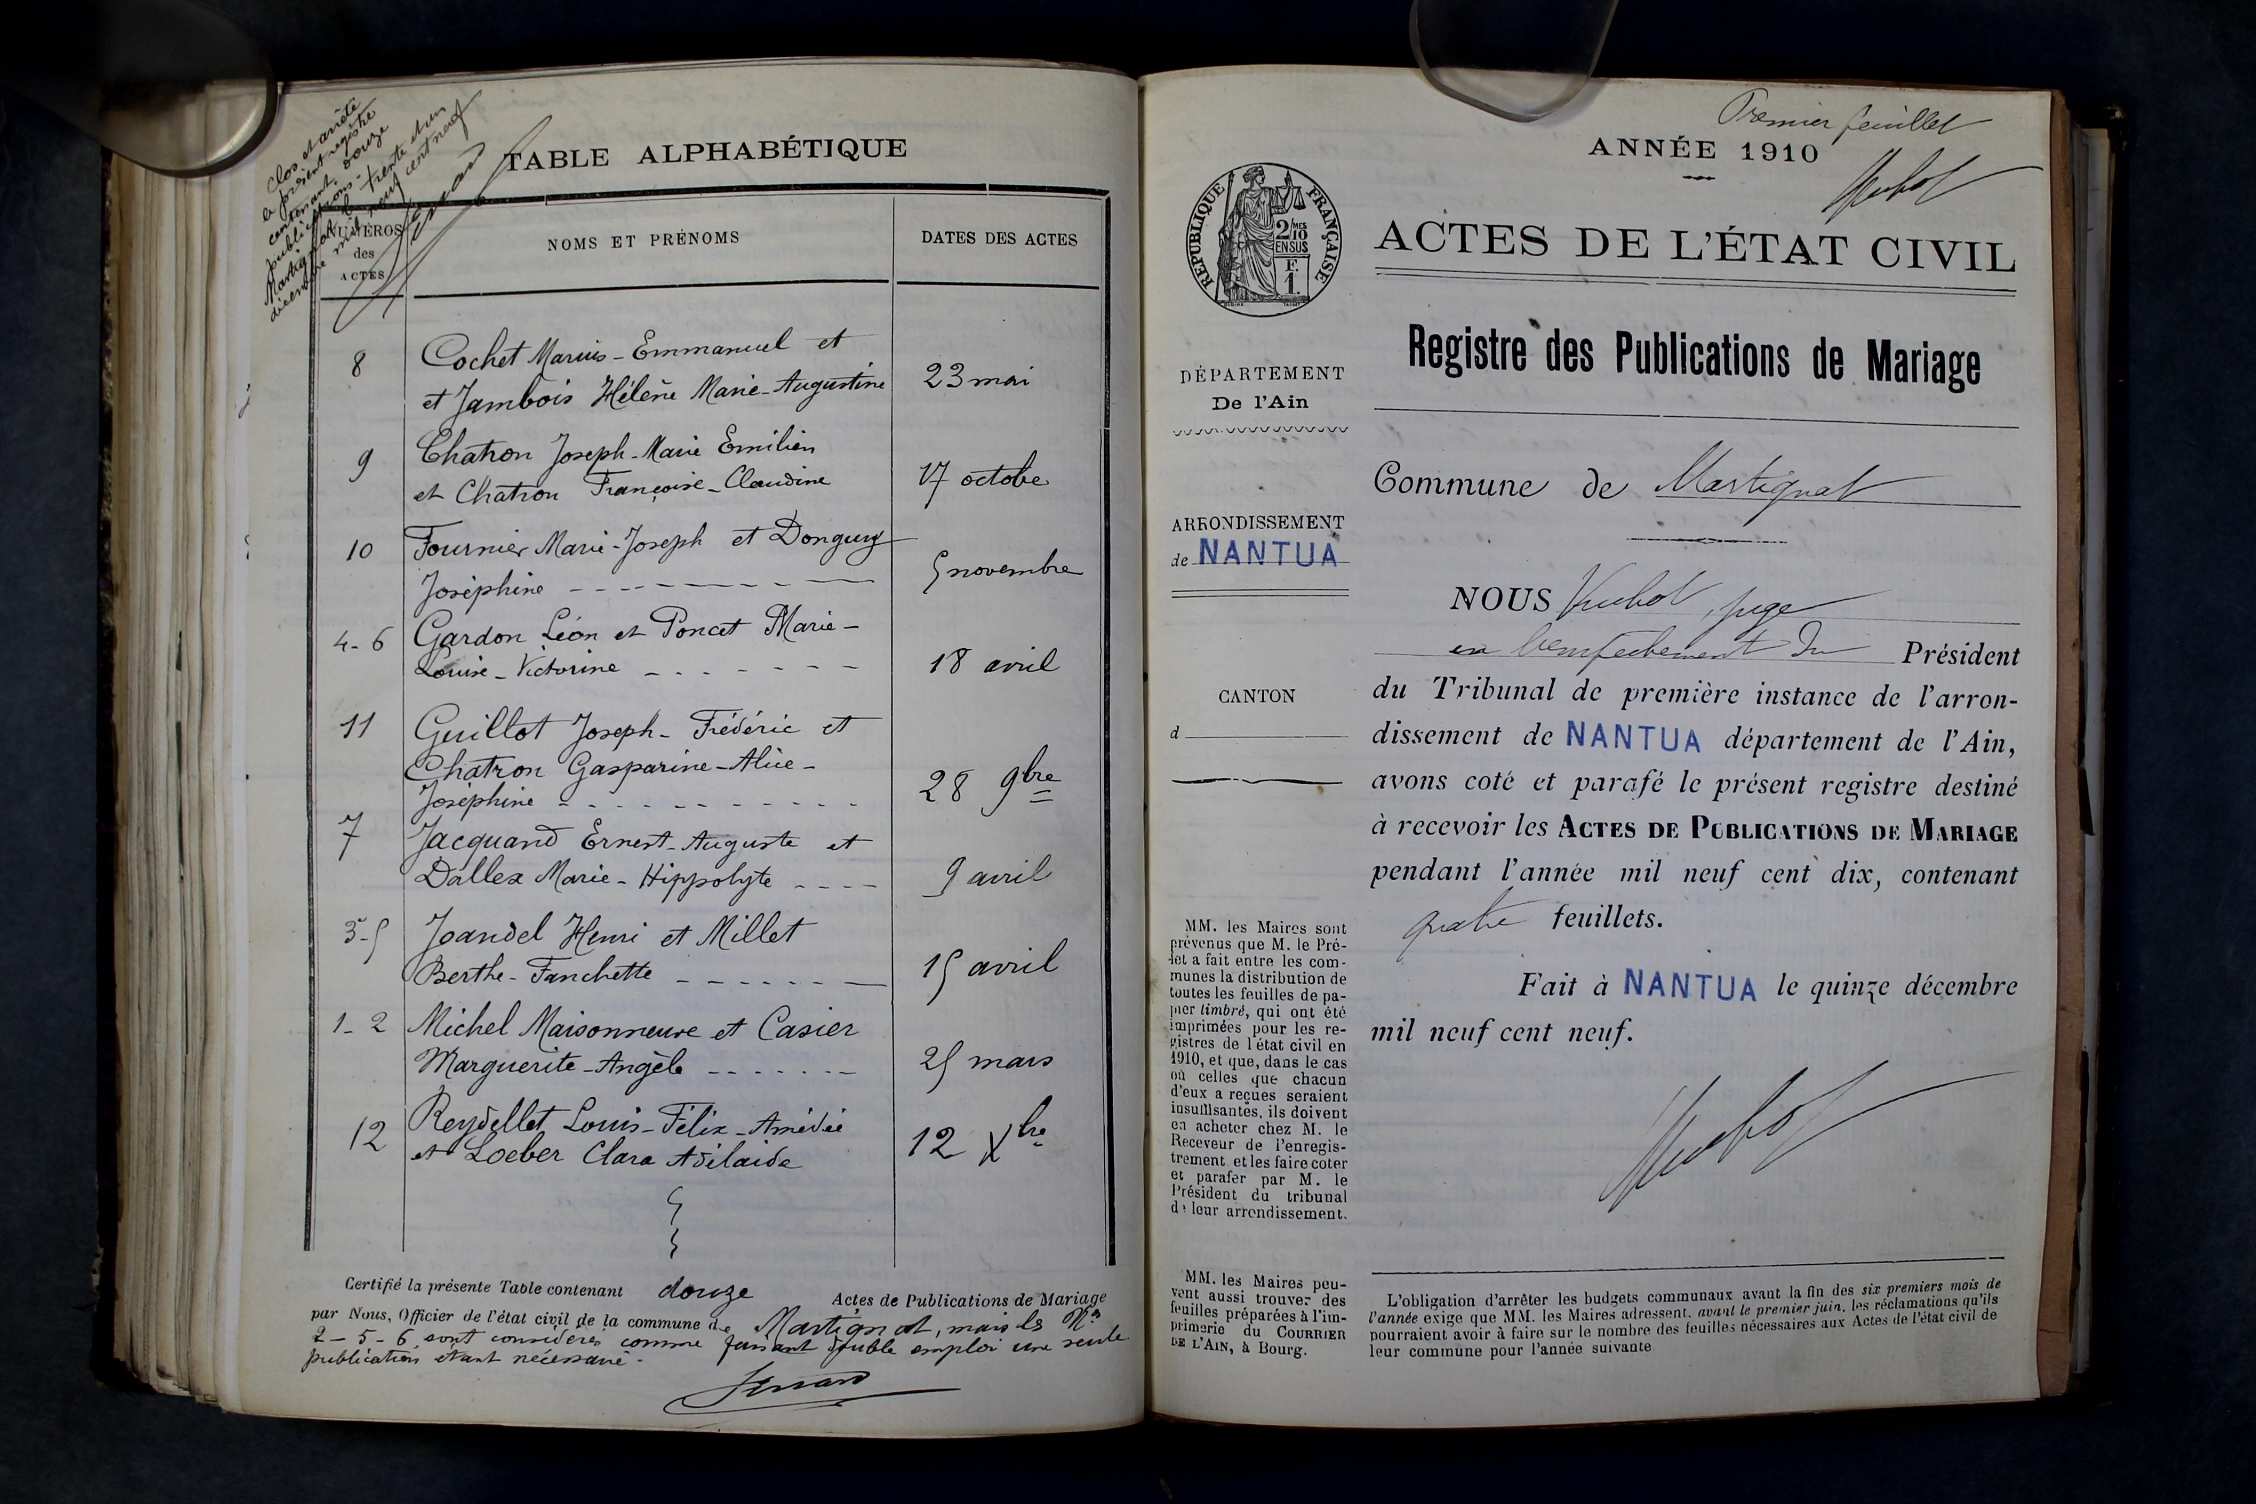 Clos et arrêté
le présent registre
contenant douze
publications.
Martignat le trente et un
décembre mil neuf cent neuf
TABLE ALPHABÉTIQUE
NUMÉROS
des
ACTES
NOMS ET PRÉNOMS
DATES DES ACTES
8
Cochet Marius-Emmanuel et
et Jambois Hélène Marie-Augustine
23 mai
9
Chatron Joseph-Marie Emilien
et Chatron Françoise-Claudine
17 octobe
10
Fournier Marie-Joseph et Donguy
Joséphine
5 novembre
4-6
Gardon Léon et Poncet Marie-
Louise-Victorine
18 avril
11
Guillot Joseph-Frédéric et
Chatron Gasparine-Alice-
Joséphine
28 9bre
7
Jacquand Ernest-Auguste et
Dallex Marie-Hippolyte
9 avril
3-5
Joandel Henri et Millet
Berthe-Fanchette
15 avril
1-2
Michel Maisonneuve et Casier
Marguerite-Angèle
25 mars
12
Reydellet Louis-Félix-Amédée
et Loeber Clara Adélaide
12 Xbre
Certifié la présente Table contenant douze Actes de Publications de Mariage
par Nous, Officier de l'état civil de la commune de Martignat, mais les Nos
2-5-6 sont considérés comme faisant double emploi une seule
publication étant nécessaire.
Premier feuillet
ANNÉE 1910
RÉPUBLIQUE FRANÇAISE
2/10MES
EN SUS
F.
1.
ACTES DE L'ÉTAT CIVIL
Registre des Publications de Mariage
DÉPARTEMENT
De l'Ain
Commune de Martignat
ARRONDISSEMENT
de NANTUA
CANTON
d
NOUS juge
en l'empêchement du Président
du Tribunal de première instance de l'arron-
dissement de NANTUA département de l'Ain,
avons coté et parafé le présent registre destiné
à recevoir les ACTES DE PUBLICATIONS DE MARIAGE
pendant l'année mil neuf cent dix, contenant
quatre feuillets.
Fait à NANTUA le quinze décembre
mil neuf cent neuf.
MM. les Maires sont
prévenus que M. le Pré-
fet a fait entre les com-
munes la distribution de
toutes les feuilles de pa-
pier timbré, qui ont été
imprimées pour les re-
gistres de l'état civil en
1910, et que, dans le cas
où celles que chacun
d'eux a reçues seraient
insuffisantes, ils doivent
en acheter chez M. le
Receveur de l'enregis-
trement et les faire coter
et parafer par M. le
Président du tribunal
de leur arrondissement.
MM. les Maires peu-
vent aussi trouver des
feuilles préparées à l'im-
primerie du COURRIER
DE L'AIN, à Bourg.
L'obligation d'arrêter les budgets communaux avant la fin des six premiers mois de
l'année exige que MM. les Maires adressent, avant le premier juin, les réclamations qu'ils
pourraient avoir à faire sur le nombre des feuilles nécessaires aux Actes de l'état civil de
leur commune pour l'année suivante